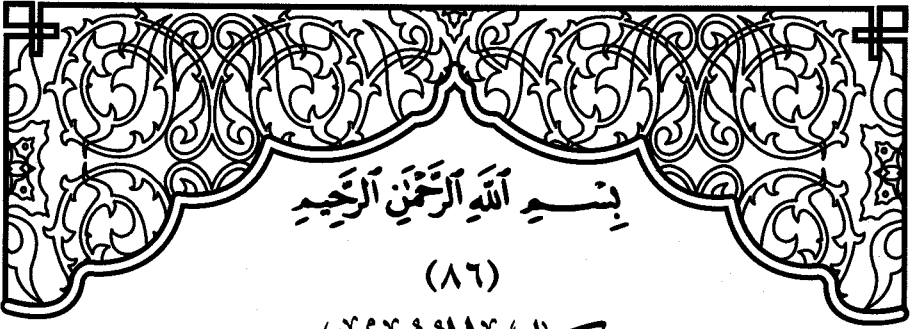 بِسْمِ ٱللَّهِ ٱلرَّحْمَٰنِ ٱلرَّحِيمِ
(٨٦)